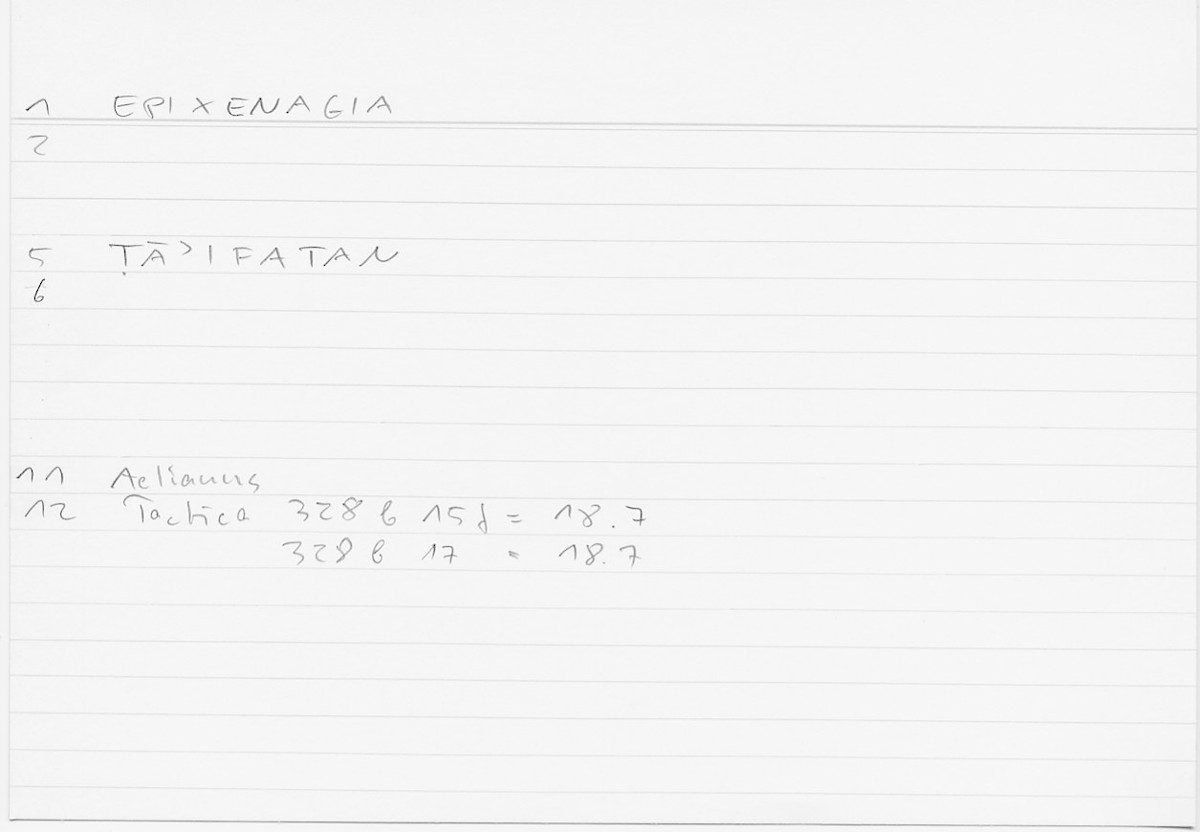 1 EPIXENAGIA
2
5 ṬĀʾIFATAN
6
11 Aelianus
12 Tactica 328 b 15f = 18.7
328 b 17 = 18.7